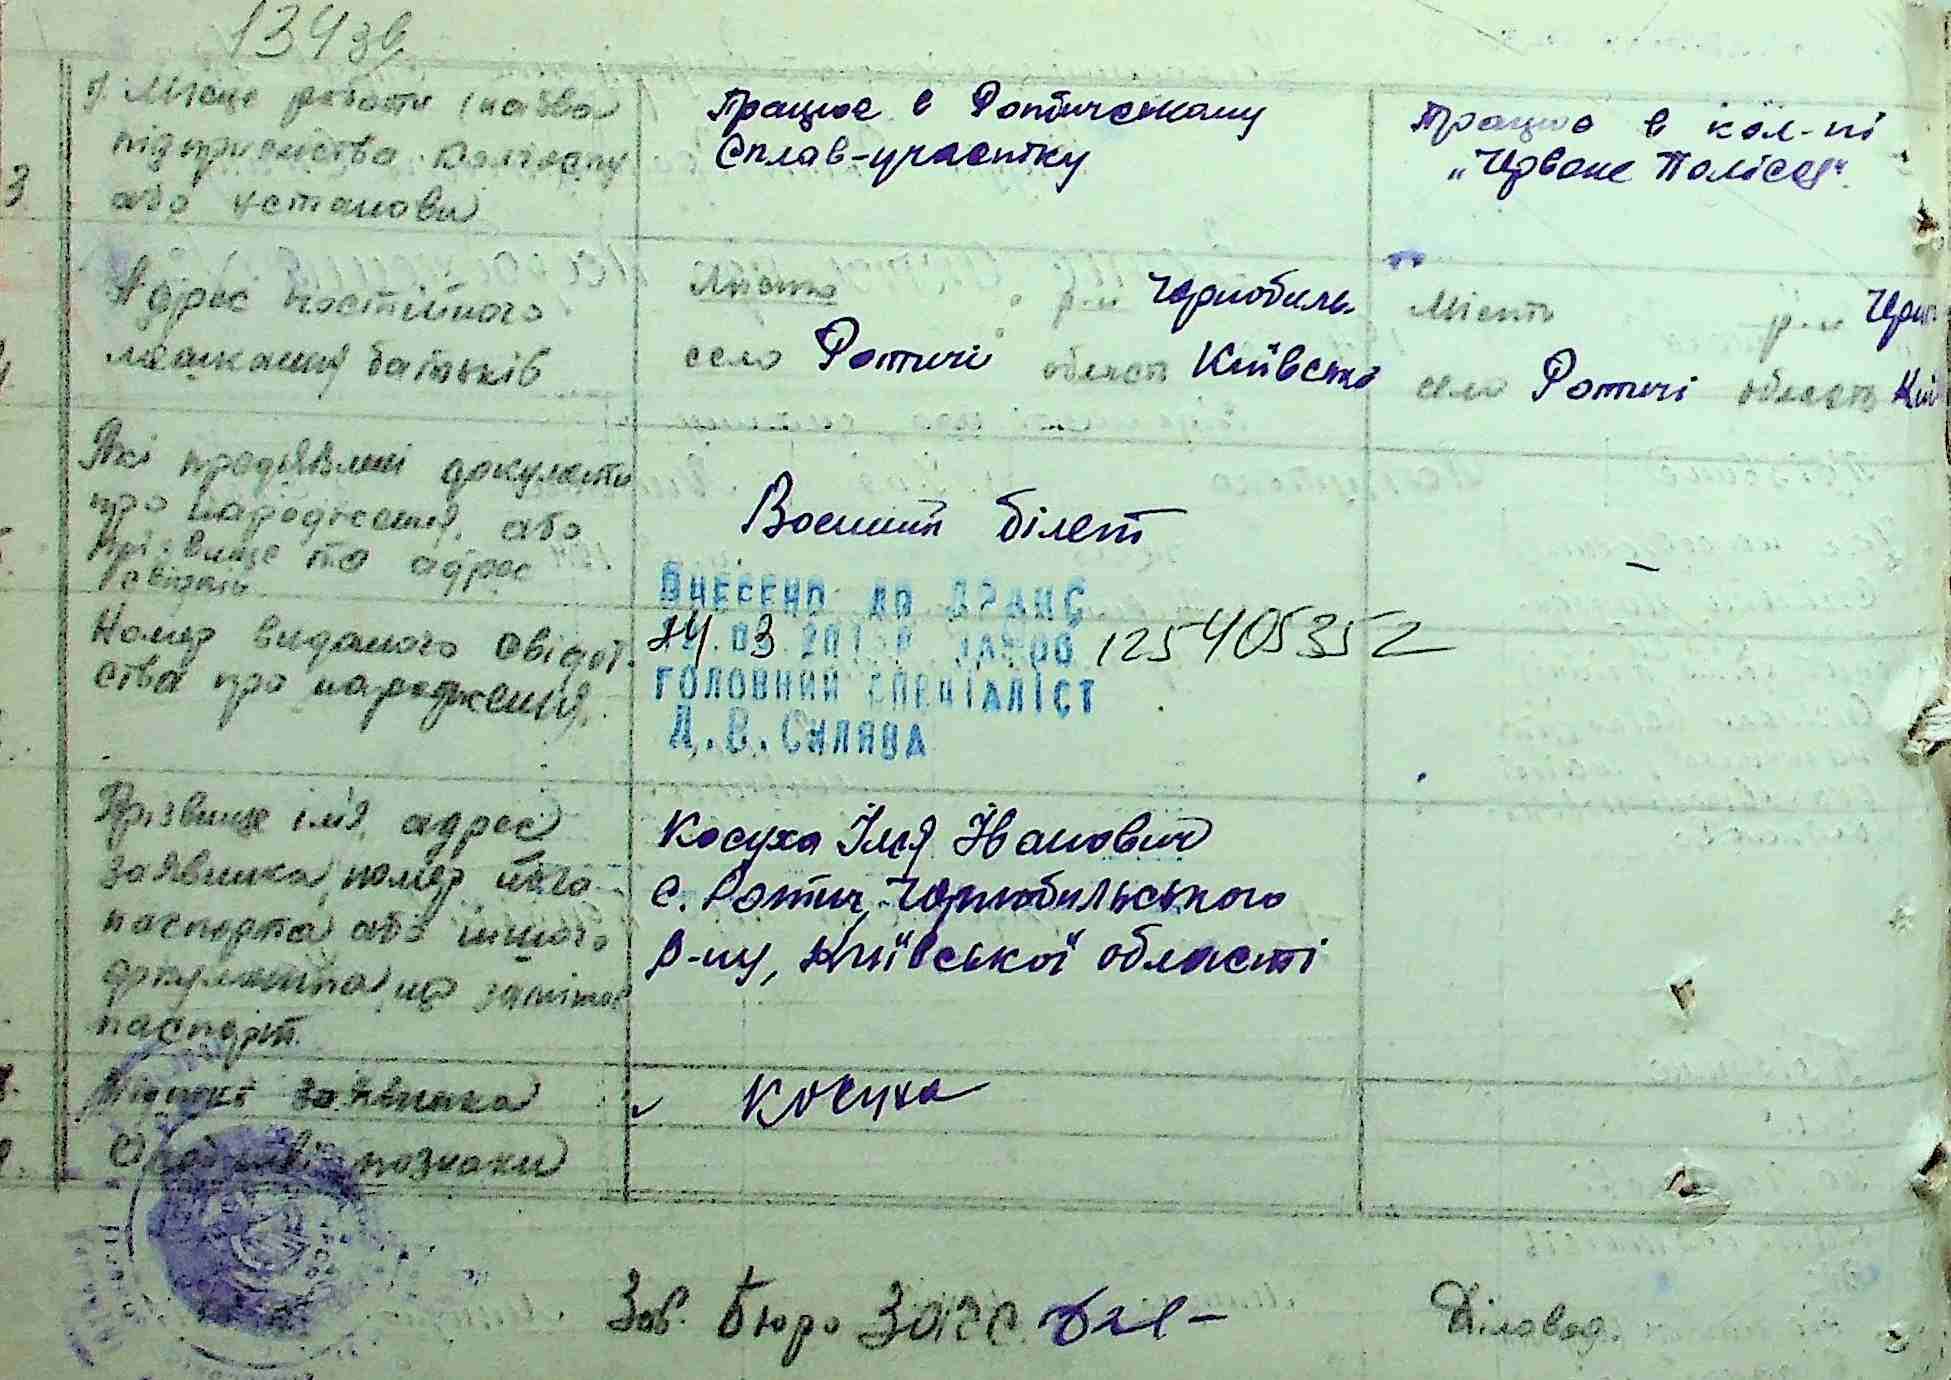 134 зв
Місце роботи (назва
підприємства колгоспу
або установи)
Працює в Ротическому
Сплав-участку
Працює в кол-пі
"Червоне Полісся".
3
Адрес постійного
мешкання батьків
Місто р-н Чорнобиль.
село Ротичі область Київська
Місто р-н
село Ротичі область
Які предявлені документи
про народження, або
прізвище та адрес
свідків
Воєнний білет
–
Номер виданого свідоц-
ства про народження.
ВНЕСЕНО ДО ДРАЦС
24.03 125405352
ГОЛОВНИЙ СПЕЦІАЛІСТ
Д.В. СИЛЯВА
Прізвище ім'я, адрес
заявника, номер його
паспорта або іншого
документа, що заміняє
паспорт.
Косуха Ілля Іванович
с. Ротич, Чорнобильського
р-ну, Київської області
Підпис заявника
Косуха
Особливі познаки
Зав. Бюро ЗАГС
Діловод.